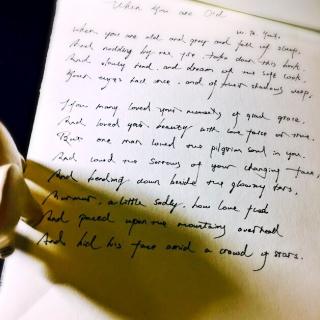 When You are Old
W. B. Yeats
When you are old and grey and full of sleep,
And nodding by the fire, take down this book,
And slowly read, and dream of the soft look
Your eyes had once, and of their shadows deep,
How many loved your moments of glad grace,
And loved your beauty with love false or true,
But one man loved the pilgrim soul in you,
And loved the sorrows of your changing face,
And bending down beside the glowing bars,
Murmur, a little sadly, how love fled
And paced upon the mountains overhead
And hid his face amid a crowd of stars.